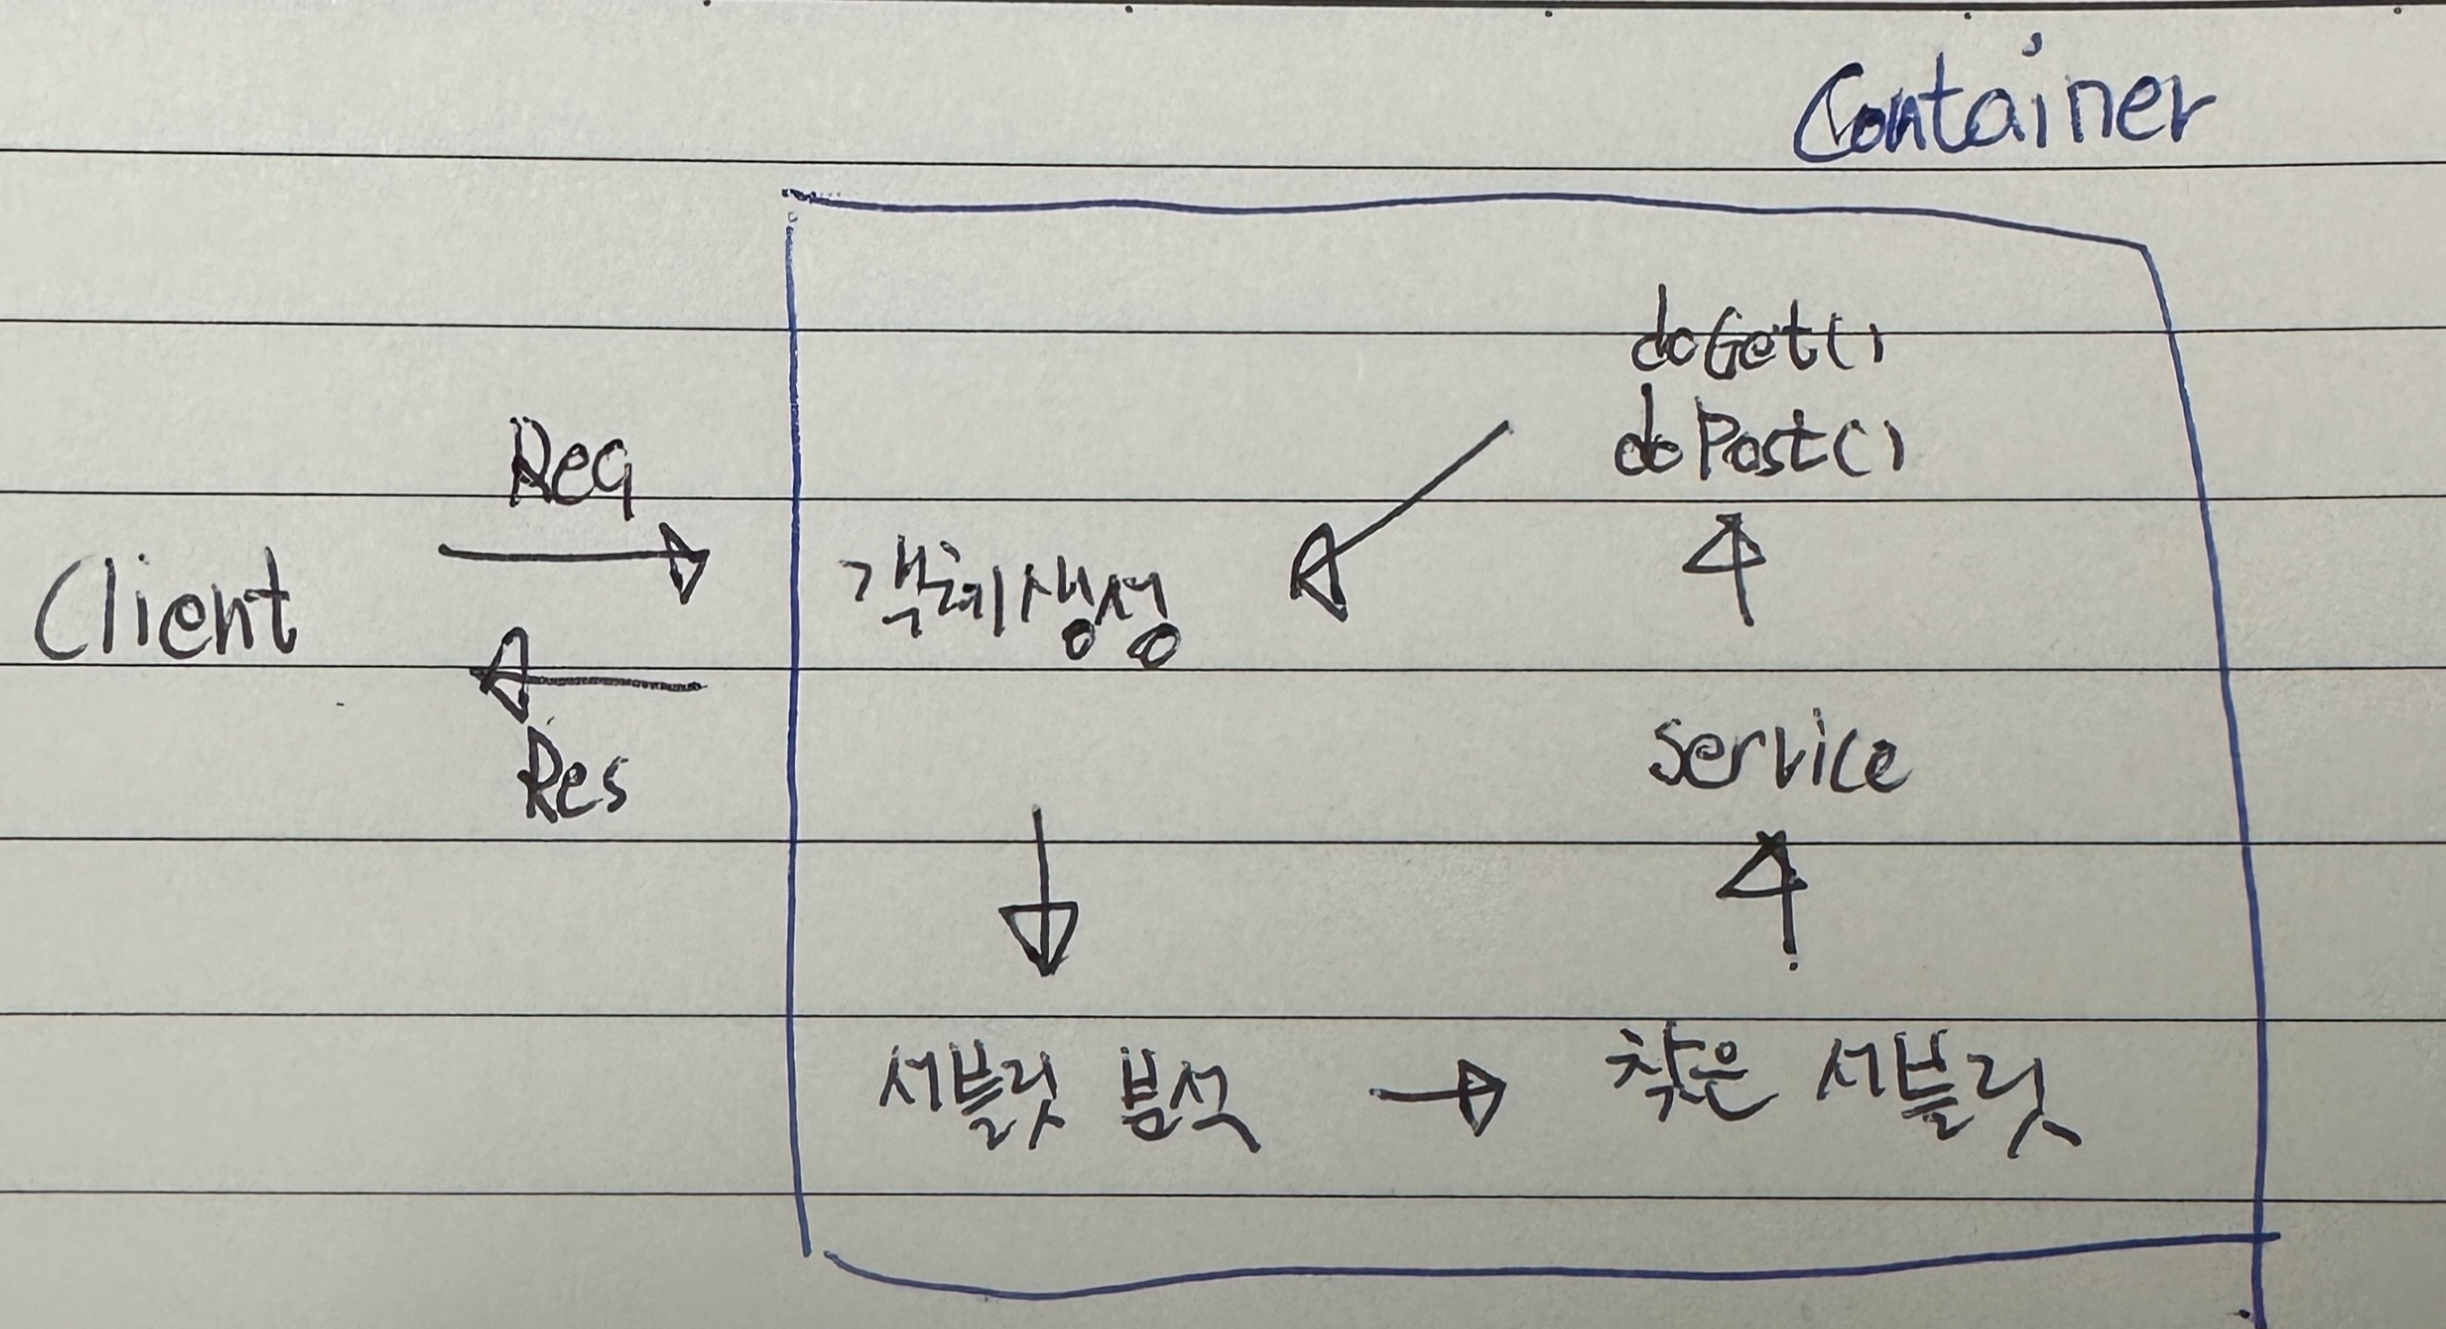 Container
doGet()
doPost()
Req
Client
객체생성
Res
service
서블릿 분석
찾은 서블릿